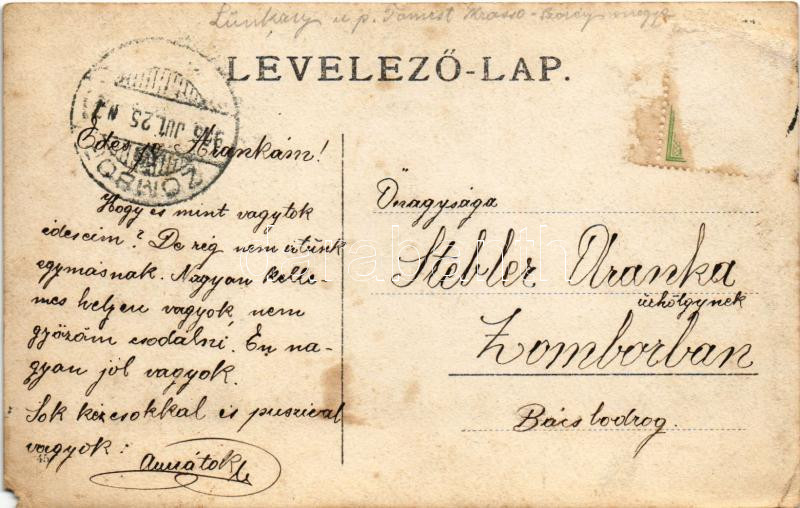 Lunkány u. p. Tomest Krassó-Szörény megye
LEVELEZŐ-LAP.
JUL 25. N
ZOMBOR
Édes Arankám!
Hogy és mint vagytok
édeseim? De rég nem irtunk
egymásnak. Nagyon kelle-
mes helyen vagyok nem
győzöm csodálni. En na-
gyon jól vagyok.
Sok kézcsokkal és puszival
vagyok:
Annátok
45
Önagysága
Stebler Aranka
úrhölgynek
Zomborban
Bácsbodrog.